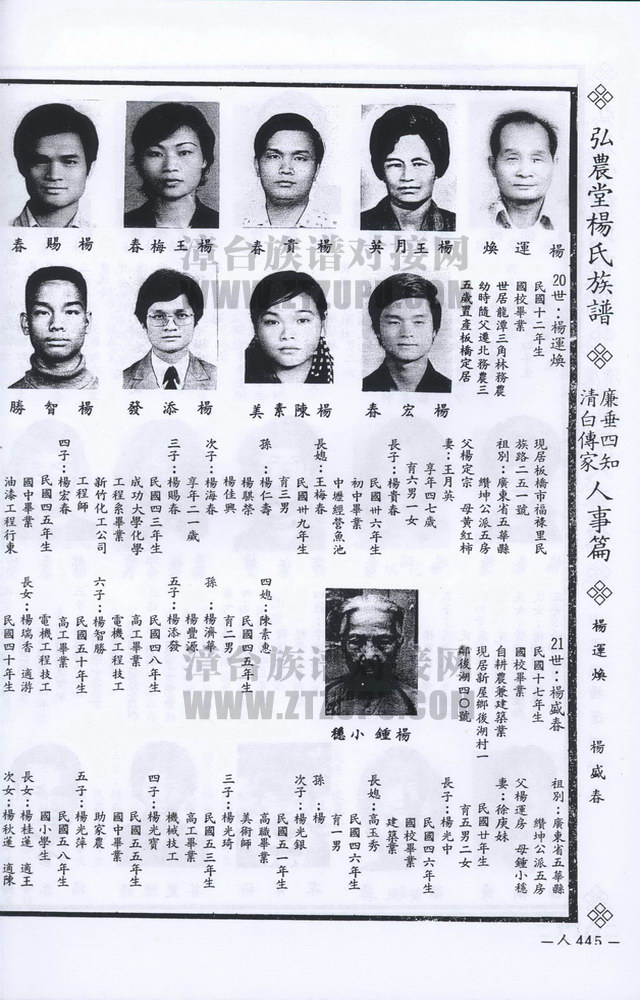 弘農堂楊氏族譜
廉垂四知
清白傳家
人事篇
楊運煥
楊盛春
楊運煥
楊王月英
楊貴春
楊王梅春
楊賜春
楊宏春
楊陳素美
楊添發
楊智勝
20世：楊運煥
民國十二年生
國校畢業
世居龍潭三角林務農
幼時隨父遷北務農三
五歲置產板橋定居
現居板橋市福祿里民
族路二五一號
祖別：廣東省五華縣
鑽坤公派五房
父楊定宗　母黃紅柿
妻：王月英
享年四七歲
育六男一女
長子：楊貴春
民國卅六年生
初中畢業
中壢經營魚池
長媳：王梅春
民國卅九年生
育三男
孫：楊仁壽
楊騏榮
楊佳興
次子：楊海春
享年二一歲
三子：楊賜春
民國四三年生
成功大學化學
工程系畢業
新竹化工公司
工程師
四子：楊宏春
民國四五年生
國中畢業
油漆工程行東
四媳：陳素惠
民國四五年生
育二男
孫：楊濟華
楊豐源
五子：楊添發
民國四八年生
高工畢業
電機工程技工
六子：楊智勝
民國五十年生
高工畢業
電機工程技工
長女：楊瑞香　適游
民國四十年生
楊鍾小穗
21世：楊盛春
民國十七年生
國校畢業
自耕農兼建築業
現居新屋鄉後湖村一
鄰後湖四〇號
祖別：廣東省五華縣
鑽坤公派五房
父楊運房　母鍾小穗
妻：徐庚妹
民國廿年生
育五男二女
長子：楊光中
民國四六年生
國校畢業
建築業
長媳：高玉秀
民國四六年生
育一男
孫：楊
次子：楊光銀
民國五一年生
高職畢業
美術師
三子：楊光琦
民國五三年生
高工畢業
機械技工
四子：楊光寶
民國五五年生
國中畢業
助家農
五子：楊光萍
民國五八年生
國小學生
長女：楊桂蓮　適王
次女：楊秋蓮　適陳
—人445—
漳台族谱对接网
WWW.ZTZUPU.COM
漳台族谱对接网
WWW.ZTZUPU.COM